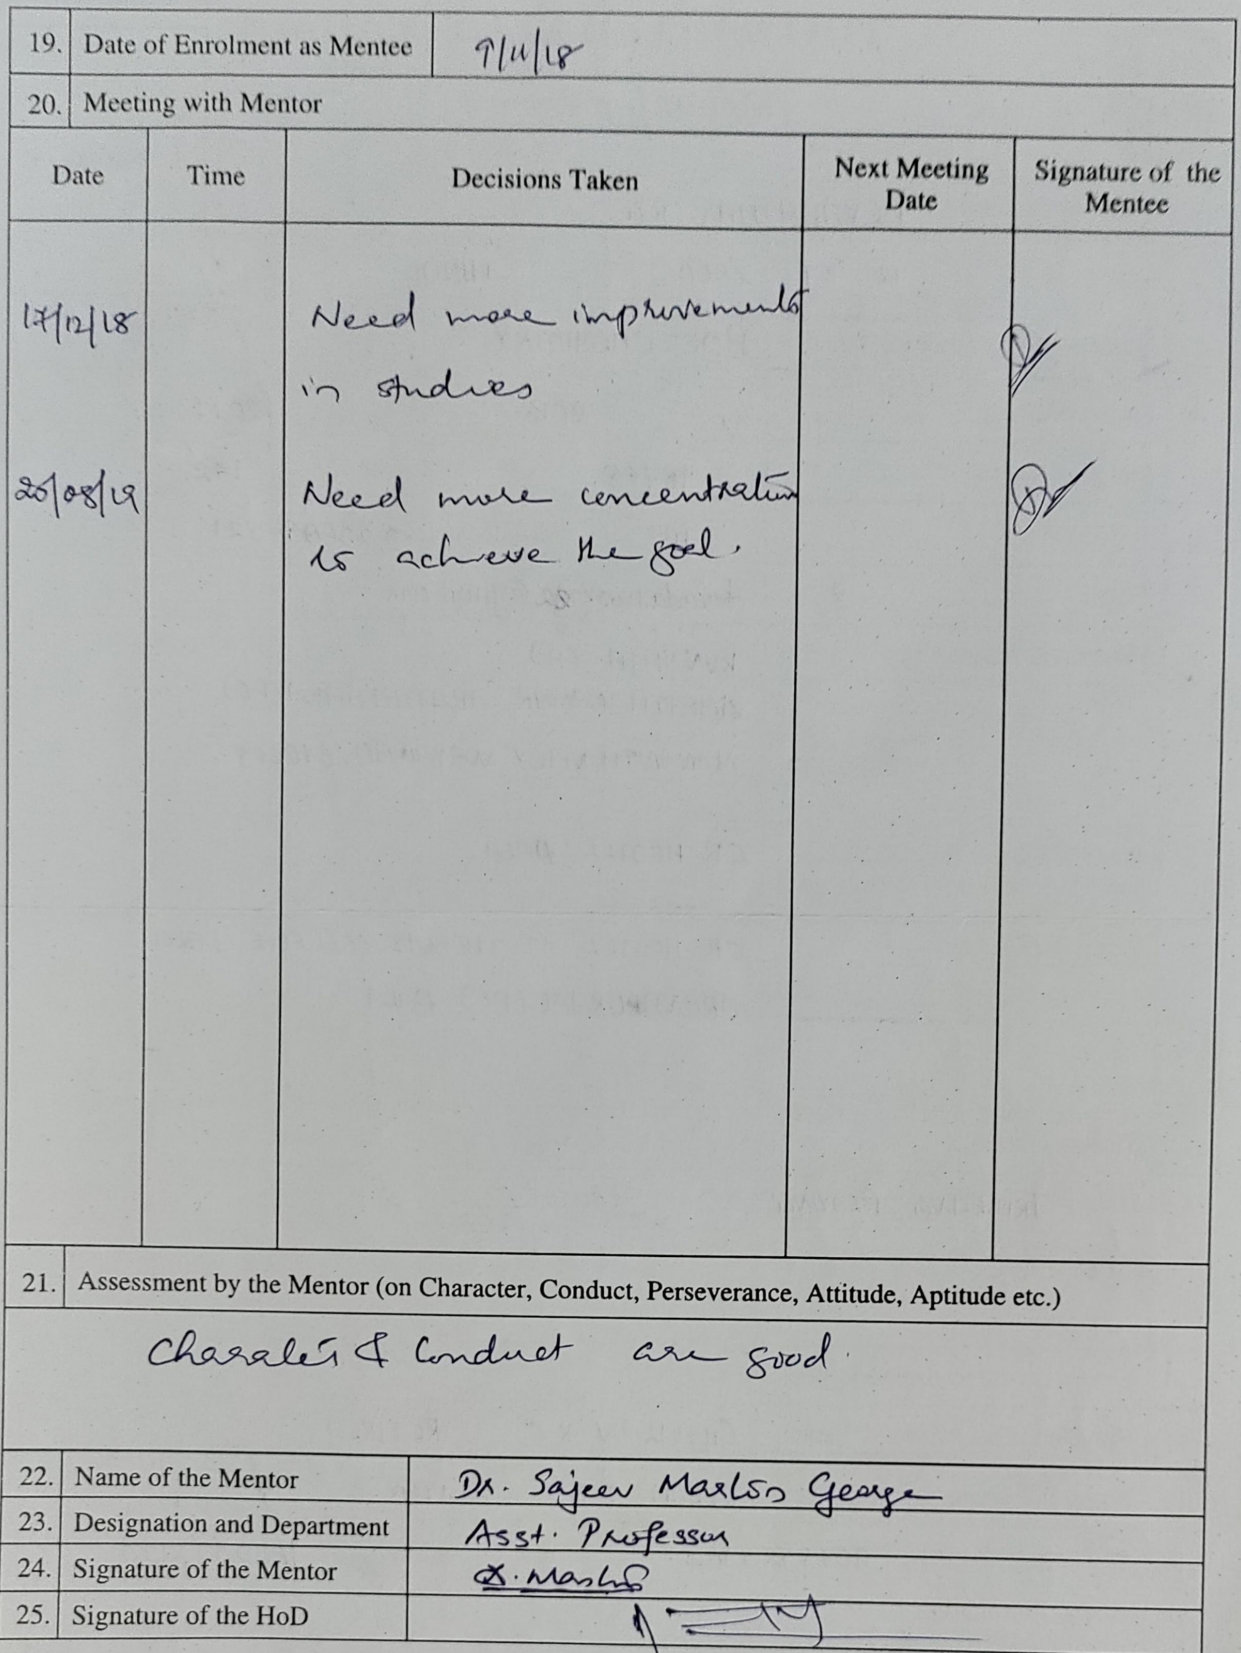 19. Date of Enrolment as Mentee 9/11/18
20. Meeting with Mentor
Date Time Decisions Taken Next Meeting Date Signature of the Mentee
17/12/18 Need more improvements
in studies
/08/19 Need more concentration
to achieve the goal.
21. Assessment by the Mentor (on Character, Conduct, Perseverance, Attitude, Aptitude etc.)
Character & Conduct are good.
22. Name of the Mentor Dr. Sajeev Martin George
23. Designation and Department Asst. Professor
24. Signature of the Mentor
25. Signature of the HoD